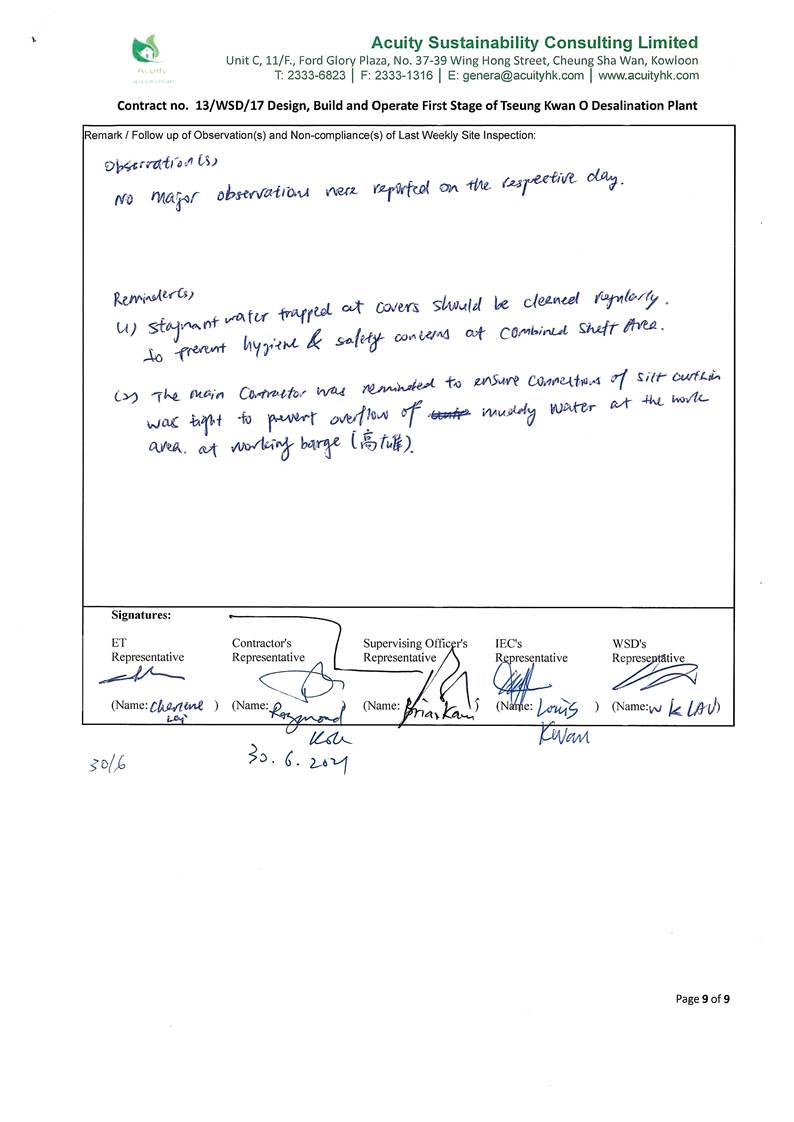 Acuity Sustainability Consulting Limited
Unit C, 11/F., Ford Glory Plaza, No. 37-39 Wing Hong Street, Cheung Sha Wan, Kowloon
T: 2333-6823 | F: 2333-1316 | E: genera@acuityhk.com | www.acuityhk.com
Contract no. 13/WSD/17 Design, Build and Operate First Stage of Tseung Kwan O Desalination Plant
Remark / Follow up of Observation(s) and Non-compliance(s) of Last Weekly Site Inspection:
Observation(s)
No major observations were reported on the respective day.
Reminder(s)
(1) Stagnant water trapped at covers should be cleaned regularly.
to prevent hygiene & safety concerns at Combined Shaft Area.
(2) The main Contractor was reminded to ensure connections of silt curtain
was tight to prevent overflow of muddy water at the work
area. at working barge (高雄).
Signatures:
ET Representative
Contractor's Representative
Supervising Officer's Representative
IEC's Representative
WSD's Representative
(Name: Cherene )
(Name: Raymond Koh )
(Name: Brian Kam )
(Name: Louis Kwan )
(Name: W K LAU)
30/6
30.6.2021
Page 9 of 9